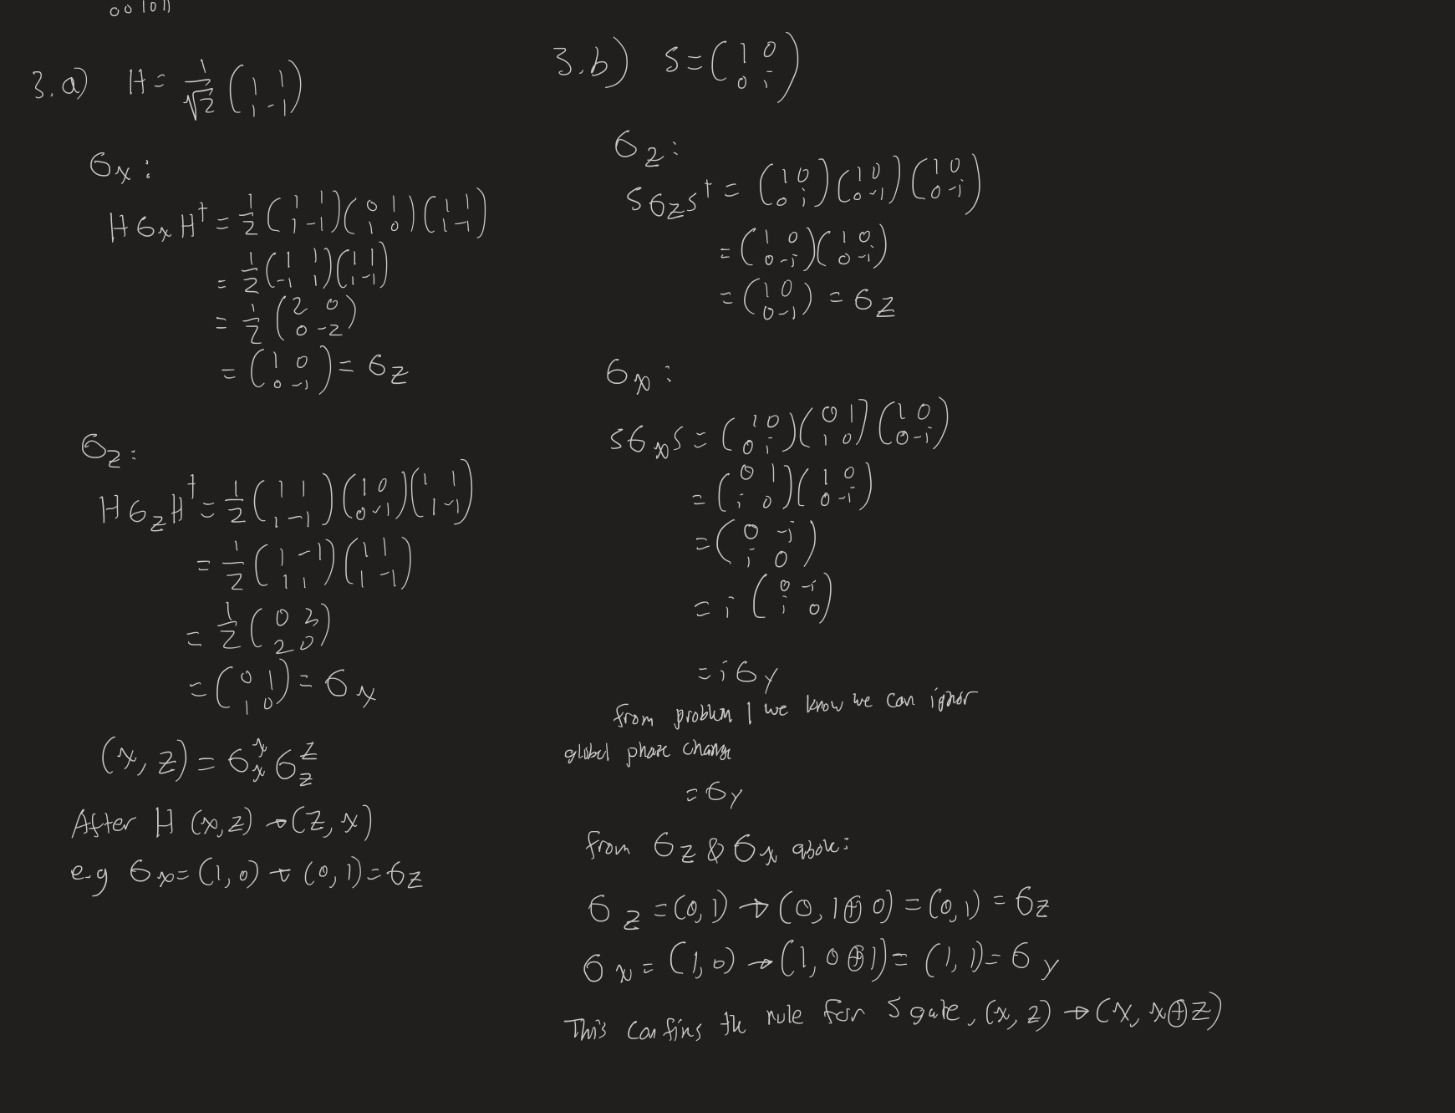 001011
3.a) H = 1/√2 (1 1; 1 -1)
σx:
Hσx H† = 1/2 (1 1; 1 -1)(0 1; 1 0)(1 1; 1 -1)
= 1/2 (1 1; -1 1)(1 1; 1 -1)
= 1/2 (2 0; 0 -2)
= (1 0; 0 -1) = σz
σz:
Hσz H† = 1/2 (1 1; 1 -1)(1 0; 0 -1)(1 1; 1 -1)
= 1/2 (1 -1; 1 1)(1 1; 1 -1)
= 1/2 (0 2; 2 0)
= (0 1; 1 0) = σx
(x, z) = σx^x σz^z
After H (x,z) → (z, x)
e.g σx = (1,0) → (0,1) = σz
3.b) S = (1 0; 0 i)
σz:
Sσz S† = (1 0; 0 i)(1 0; 0 -1)(1 0; 0 -i)
= (1 0; 0 -i)(1 0; 0 -i)
= (1 0; 0 -1) = σz
σx:
Sσx S = (1 0; 0 i)(0 1; 1 0)(1 0; 0 -i)
= (0 1; i 0)(1 0; 0 -i)
= (0 -i; i 0)
= i (0 -i; i 0)
= iσy
from problem 1 we know we can ignor
global phase change
= σy
from σz & σx above:
σz = (0,1) → (0, 1⊕0) = (0,1) = σz
σx = (1,0) → (1, 0⊕1) = (1,1) = σy
This confins the rule for S gate, (x, z) → (x, x⊕z)